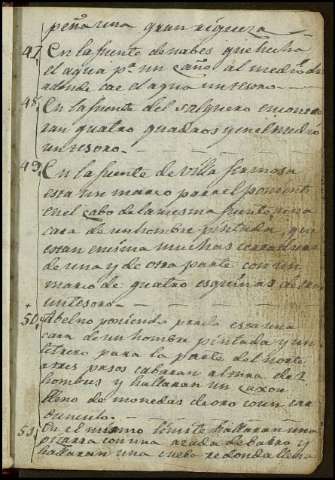 peña una gran riqueza
47 En la fuente de nabes que hecha
el agua pª un caño al medio de
adonde cae el agua un tesoro
48 En la fuente del salguero encontra
ran quatro quadros y en el medio
un tesoro
49 En la fuente de villa fermosa
esta un marco para el poniente
en el cabo de la mesma fuente una
cara de un hombre pintada, que
estan encima muchas
de una y de otra parte con un
marco de quatro esquinas
un tesoro
50 poniendo esta una
cara de un hombre pintada y un
letrero para la parte del norte
a tres pasos cabaran altura de 2
hombres y hallaran un caxon
lleno de monedas de oro o un car
bunculo
51 En el mismo limite hallaran una
pizarra con una
hallaran una cueba redonda llena